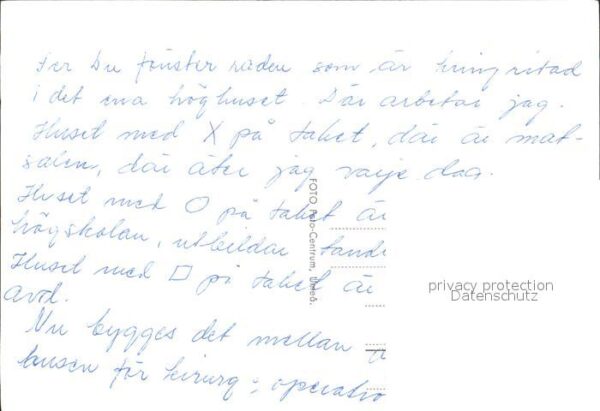 Ser Du fönster raden som är kringritad
i det ena höghuset. Där arbetar jag.
Huset med X på taket, där är mat-
salen, där äter jag varje dag.
Huset med O på taket är
högskolan, utbildar tandl
Huset med □ på taket är
avd.
Nu bygges det mellan
husen för kirurg; operatio
FOTO Foto-Centrum, Umeå.
privacy protection
Datenschutz